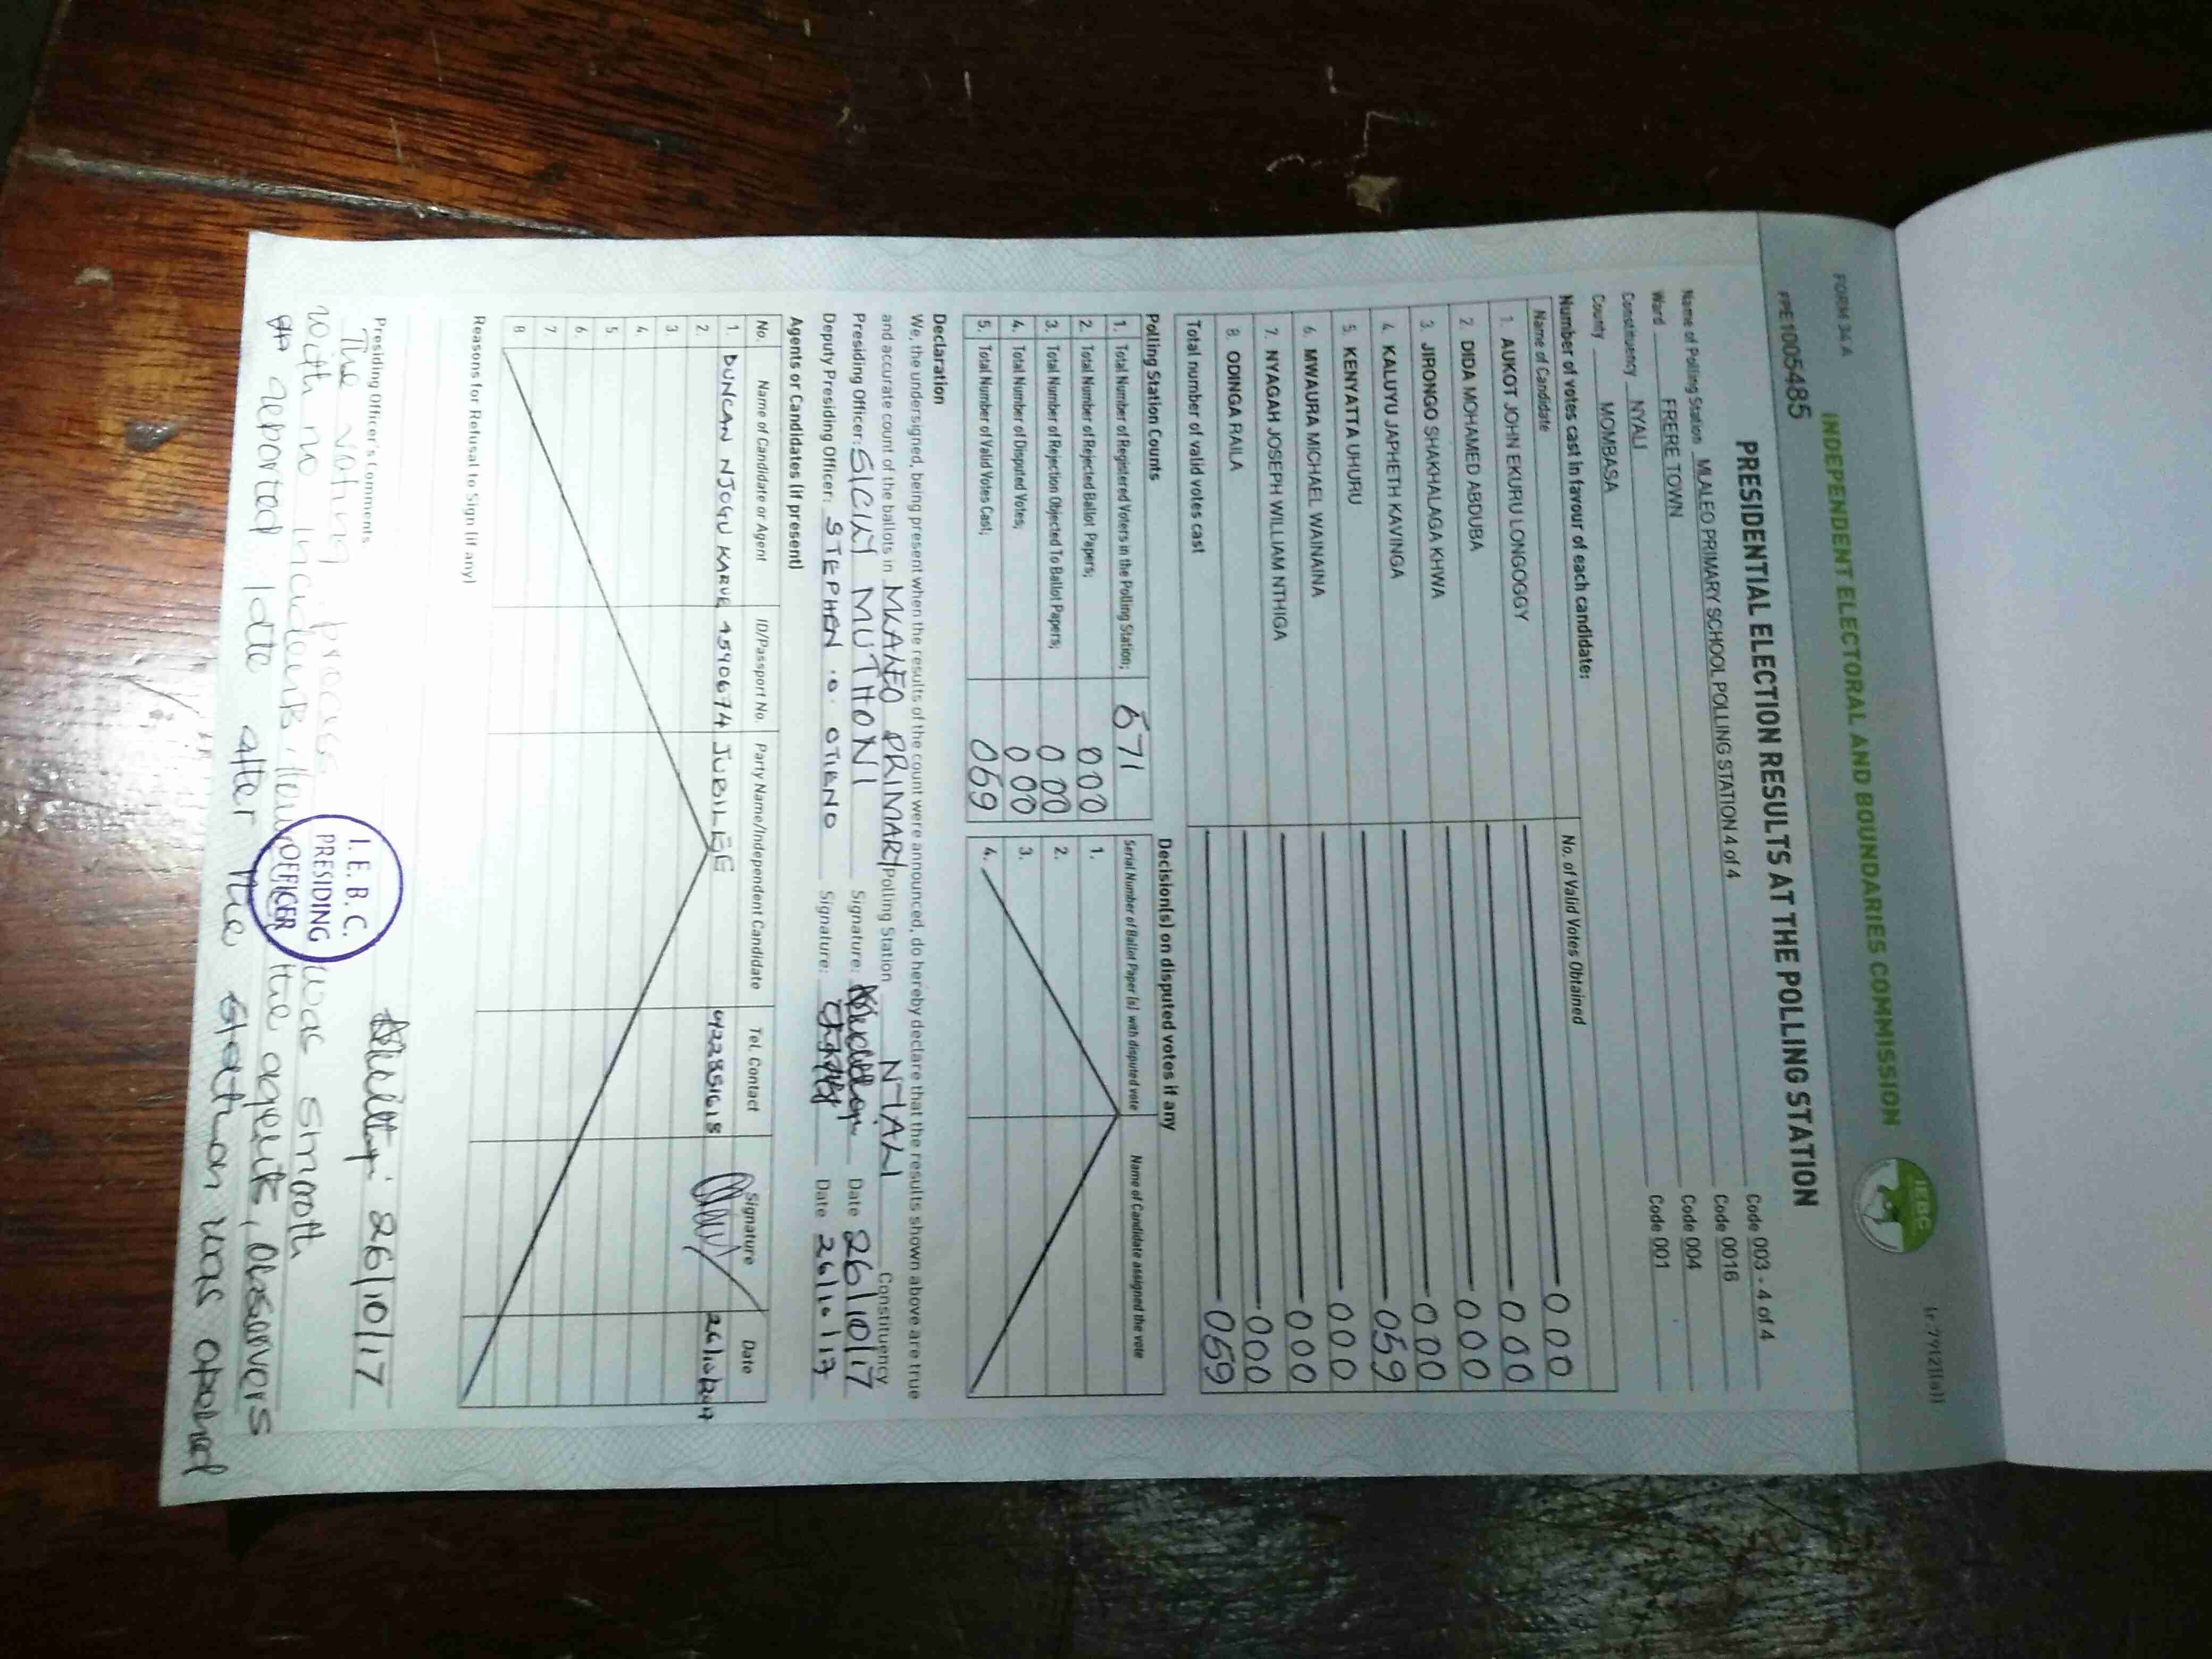 FORM 34 A
INDEPENDENT ELECTORAL AND BOUNDARIES COMMISSION
IEBC
PPE1005485
PRESIDENTIAL ELECTION RESULTS AT THE POLLING STATION
Name of Polling Station MLALEO PRIMARY SCHOOL POLLING STATION 4 of 4 Code 003 - 4 of 4
Ward FRERE TOWN Code 0016
Constituency NYALI Code 004
County MOMBASA Code 001
Number of votes cast in favour of each candidate:
Name of Candidate No. of Valid Votes Obtained
1. AUKOT JOHN EKURU LONGOGGY 000
2. DIDA MOHAMED ABDUBA 000
3. JIRONGO SHAKHALAGA KHWA 000
4. KALUYU JAPHETH KAVINGA 000
5. KENYATTA UHURU 059
6. MWAURA MICHAEL WAINAINA 000
7. NYAGAH JOSEPH WILLIAM NTHIGA 000
8. ODINGA RAILA 000
Total number of valid votes cast 069
Polling Station Counts
1. Total Number of Registered Voters in the Polling Station; 671
2. Total Number of Rejected Ballot Papers; 000
3. Total Number of Rejection Objected To Ballot Papers; 000
4. Total Number of Disputed Votes; 000
5. Total Number of Valid Votes Cast; 069
Decision(s) on disputed votes if any
Serial Number of Ballot Paper (s) with disputed vote Name of Candidate assigned the vote
1.
2.
3.
4.
Declaration
We, the undersigned, being present when the results of the count were announced, do hereby declare that the results shown above are true
and accurate count of the ballots in MLALEO PRIMARY Polling Station NYALI Constituency
Presiding Officer: SICILY MUTHONI Signature: Date 26/10/17
Deputy Presiding Officer: STEPHEN .O. OTIENO Signature: Date 26/10/17
Agents or Candidates (if present)
No. Name of Candidate or Agent ID/Passport No. Party Name/Independent Candidate Tel. Contact Signature Date
1. DUNCAN NJOGU JUBILEE 26/10/2017
2.
3.
4.
5.
6.
7.
8.
Reasons for Refusal to Sign (if any)
Presiding Officer's Comments 26/10/17
The voting process was smooth
with no the agents, observers
reported late after the station was opened
I.E.B.C.
PRESIDING
OFFICER